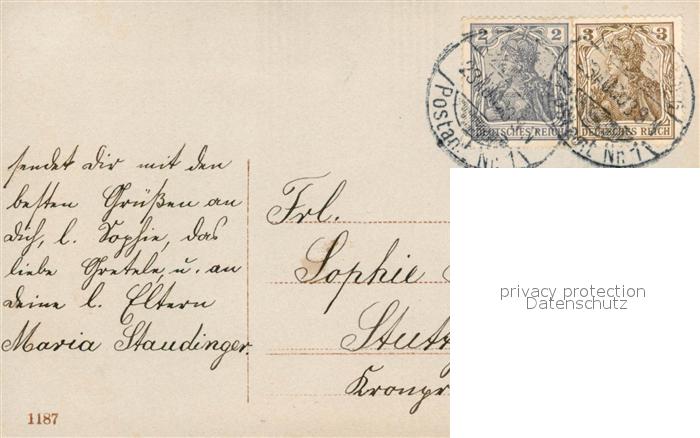 2 3
DEUTSCHES REICH DEUTSCHES REICH
Postamt Nr. 1 Nr. 1
sendet Dir mit den
besten Grüßen an
Dich, l. Sophie, das
liebe Gretele, u. an
Deine l. Eltern
Maria Staudinger.
Frl.
Sophie
Stutt
Kronpr
privacy protection
Datenschutz
1187